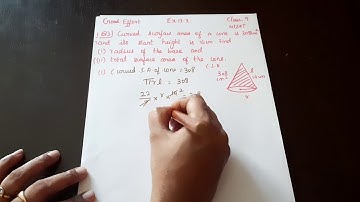 Good Effort Ex:13.3 Class: 9
NCERT
Q3) Curved surface area of a cone is 308cm²
and its slant height is 14cm. Find
(i) radius of the base and
(ii) total surface area of the cone.
(i) Curved S.A of cone = 308
C.S.A
308
cm²
l
14cm
r
πrl = 308
22/7 × r × 14 2 =